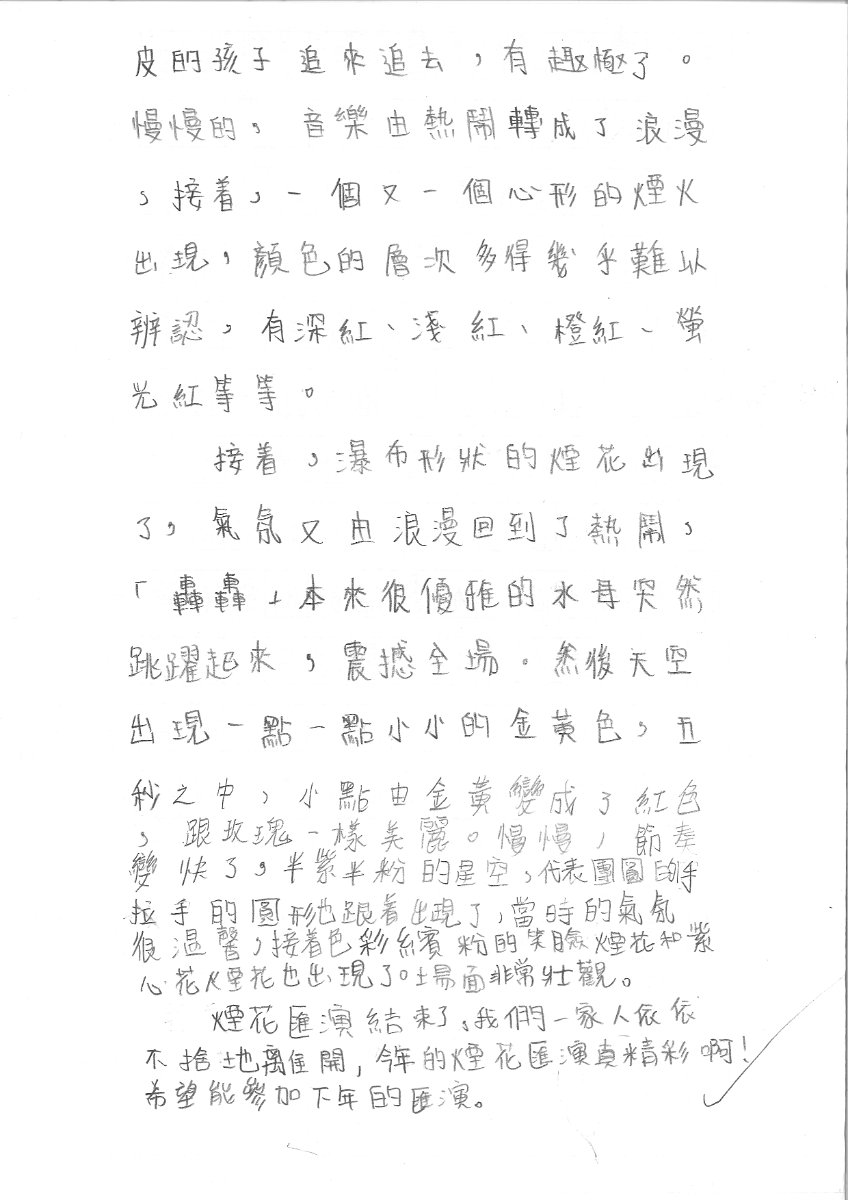 皮的孩子追來追去，有趣極了。
慢慢的，音樂由熱鬧轉成了浪漫
，接着，一個又一個心形的煙火
出現，顏色的層次多得幾乎難以
辨認，有深紅、淺紅、橙紅、螢
光紅等等。
接着，瀑布形狀的煙花出現
了，氣氛又由浪漫回到了熱鬧，
「轟轟」本來很優雅的水母突然
跳躍起來，震撼全場。然後天空
出現一點一點小小的金黃色，五
秒之中，小點由金黃變成了紅色
，跟玫瑰一樣美麗。慢慢，節奏
變快了，半紫半粉的星空，代表團圓的手
拉手的圓形也跟着出現了，當時的氣氛
很溫馨，接着色彩繽粉的笑臉煙花和紫
心花火煙花也出現了。場面非常壯觀。
煙花匯演結束了，我們一家人依依
不捨地離開，今年的煙花匯演真精彩啊！
希望能參加下年的匯演。